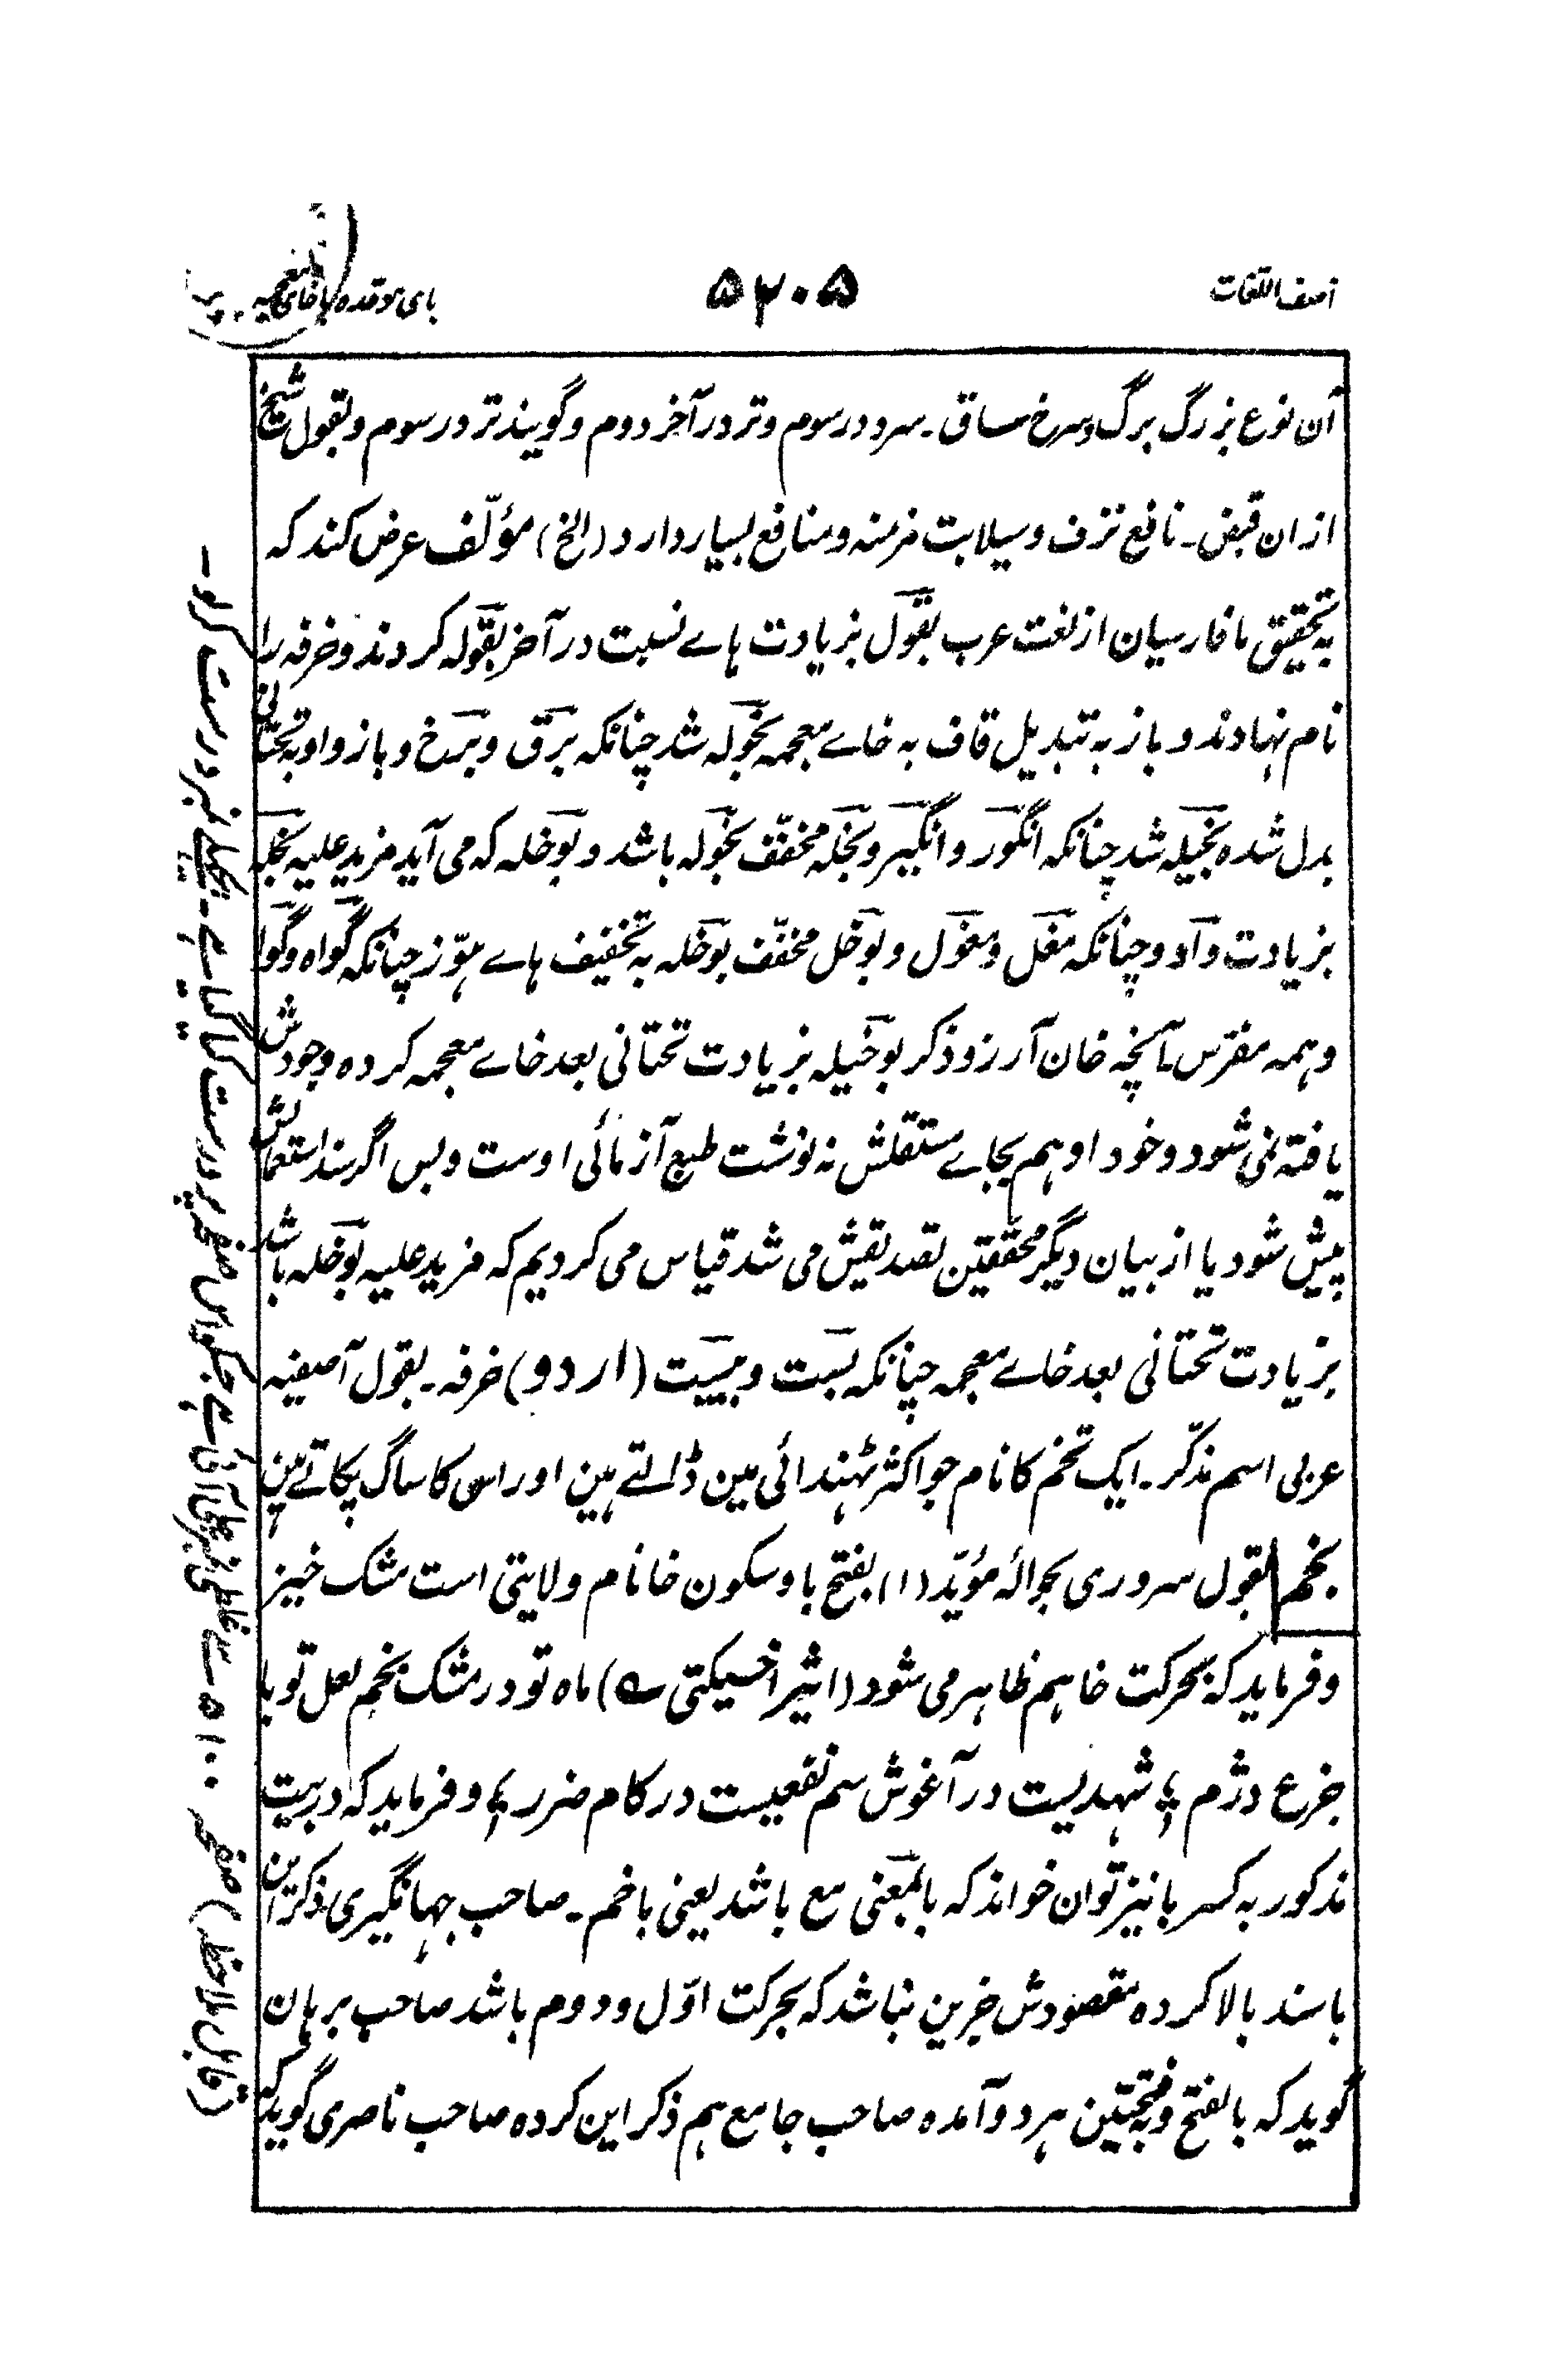 آصف اللغات
۵۲۰۵
بای موحّده با خای معجمہ
آن نوع بزرگ برگ و سرخ ساق ۔ سرد در سوم و تر در آخر دوم و گویند تر در سوم و بقول شیخ
ازان قبض ۔ نافع نزف و سیلابت مزمنہ و منافع بسیار دارد (الخ) مؤلّف عرض کند کہ
بہ تحقیق ما فارسیان از لغت عرب بقول بزیادت ہاے نسبت در آخر بقولہ کردند و خرفہ را
نام نہادند و باز بہ تبدیل قاف بہ خاے معجمہ بخولہ شد چنانکہ برق و برخ و باز واو بہ تحتانی
بدل شدہ بخیلہ شد چنانکہ انگور و انگیر و بخلہ مخفّف بخولہ باشد و بوخلہ کہ می آید مزید علیہ بخلہ
بزیادت واو و چنانکہ مغل و مغول و بوخل مخفّف بوخلہ بہ تخفیف ہاے ہوّز چنانکہ گواہ و گوا
و ہمہ مفرّس ۔ آنچہ خان آرزو ذکر بوخیلہ بزیادت تحتانی بعد خاے معجمہ کردہ وجودش
یافتہ نمی شود و خود او ہم بجاے مستقلش نہ نوشت طبع آزمائی اوست و بس اگر سند استعمالش
پیش شود یا از بیان دیگر محققین تصدیقش می شد قیاس می کردیم کہ مزید علیہ بوخلہ باشد
بزیادت تحتانی بعد خاے معجمہ چنانکہ بست و بیست (اردو) خرفہ ۔ بقول آصفیہ
عربی اسم مذکّر ۔ ایک تخم کا نام جو اکثر ٹہنڈائی مین ڈالتے ہین اور اس کا ساگ پکاتے ہین
بخم بقول سروری بحوالۂ مؤیّد (۱) بفتح با و سکون خا نام ولایتی است مشک خیز
و فرماید کہ بحرکت خا ہم ظاہر می شود (اثیر اخسیکتی ؎) ماہ تو در مشک بخم لعل تو با
جزع دژم ؛ شہدیست در آغوش سم نفعیست در کام ضرر ؛ و فرماید کہ در بیت
مذکور بہ کسر با نیز توان خواند کہ با بمعنی مع باشد یعنی باخم ۔ صاحب جہانگیری ذکر این
با سند بالا کردہ مقصودش جزین نباشد کہ بحرکت اوّل و دوم باشد صاحب برہان
گوید کہ بالفتح و بفتحتین ہر دو آمدہ صاحب جامع ہم ذکر این کردہ صاحب ناصری گوید کہ
(قابل ملاحظہ) صفحہ ۵۱۰۰ سے غلطی نمبر چلی آئی ہے جسکو اس صفحہ پر درست کیا گیا ہے ۔ پچھلے نمبر درست کرلو ۔